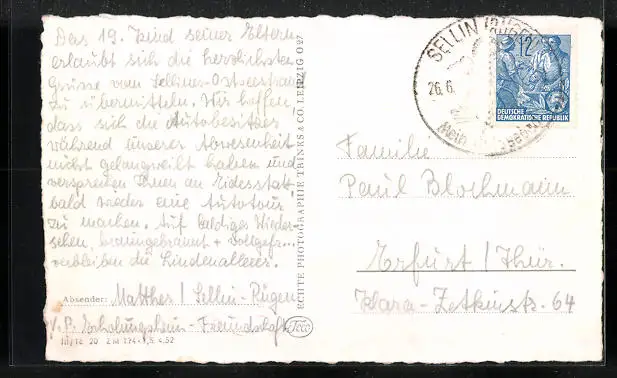 Das 19. Kind seiner Eltern
erlaubt sich die herzlichsten
Grüsse vom Selliner-Ostseestrand
zu übermitteln. Wir hoffen,
dass sich die Autobesitzer
während unserer Abwesenheit
nicht gelangweilt haben und
versprechen Ihnen an Eidesstatt,
bald wieder eine Autotour
zu machen. Auf baldiges Wieder-
sehen, braungebrannt +
verbleiben die Lindenalleer.
Absender: Matthes / Sellin-Rügen
Erholungsheim-Freundschaft
ECHTE PHOTOGRAPHIE TRINKS & CO. LEIPZIG O 27
Trico
SELLIN (RÜGEN)
26.6. 12
DEUTSCHE
DEMOKRATISCHE REPUBLIK
5
Familie
Paul Blochmann
Erfurt / Thür.
Klara-Zetkinstr. 64